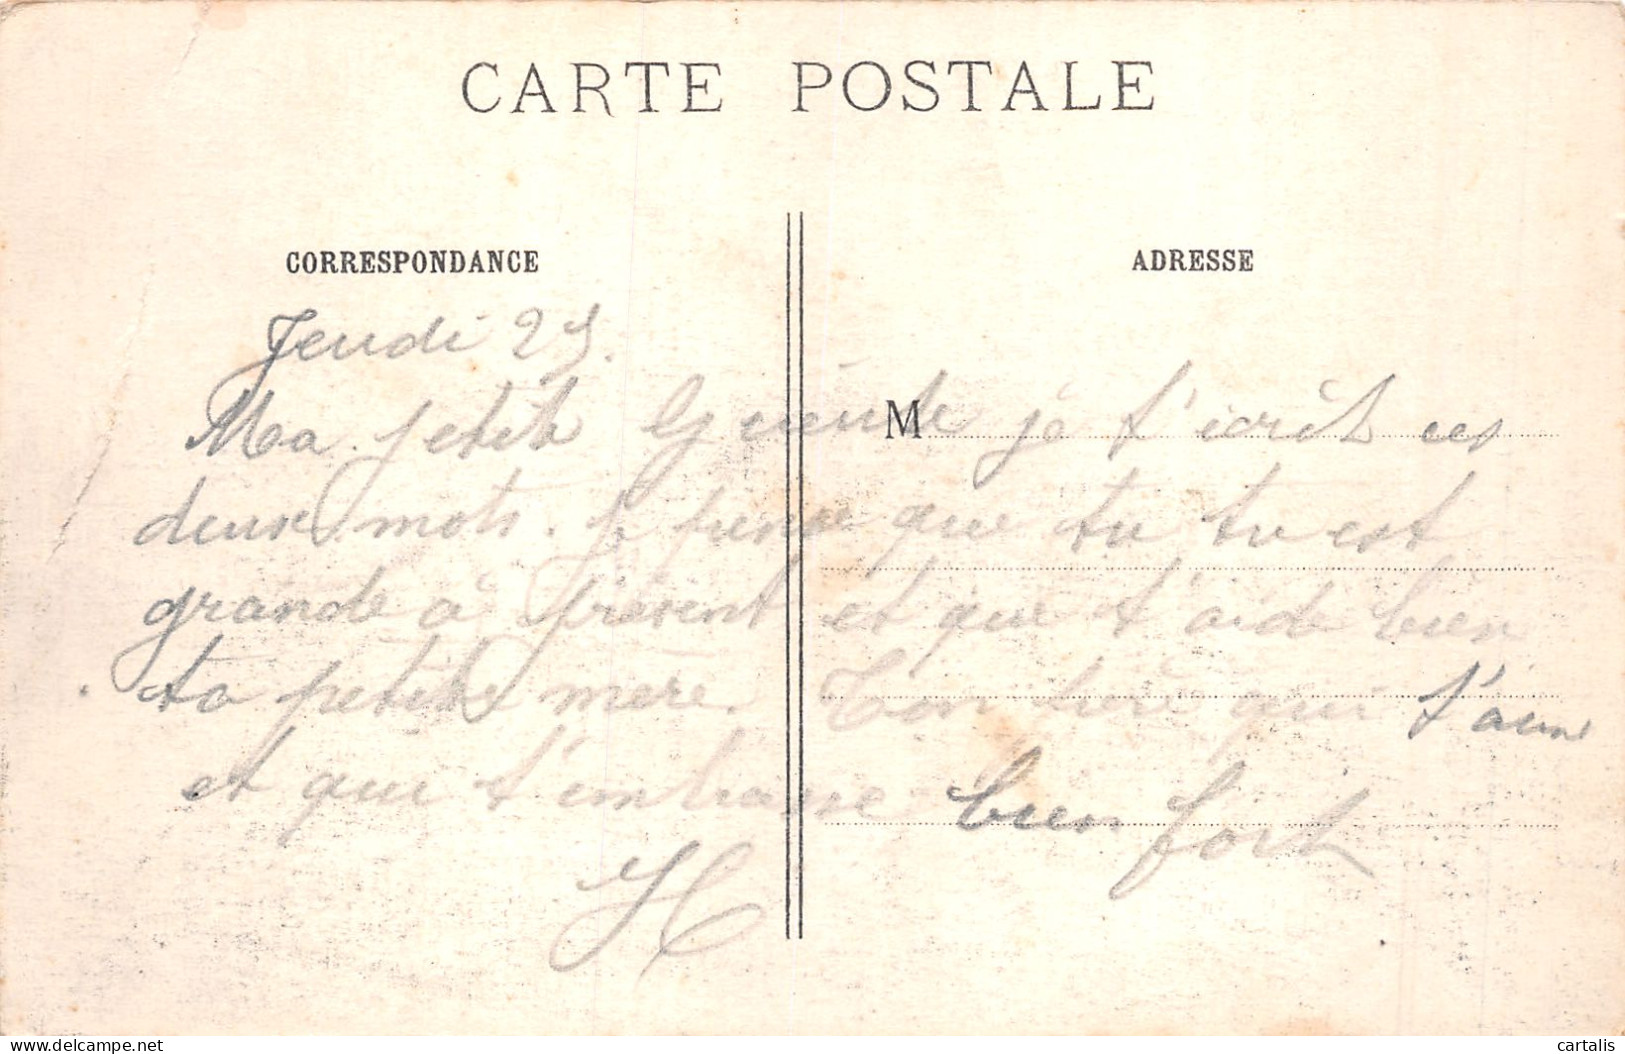 CARTE POSTALE
CORRESPONDANCE
ADRESSE
Jeudi 25.
Ma petite je t'écrit ces
M
deux mots. Je pense que tu tu est
grande à présent et que t'aide bien
ta petite mere. Ton qui t'aime
et qui t'embrasse bien fort
H
delcampe.net
cartalis